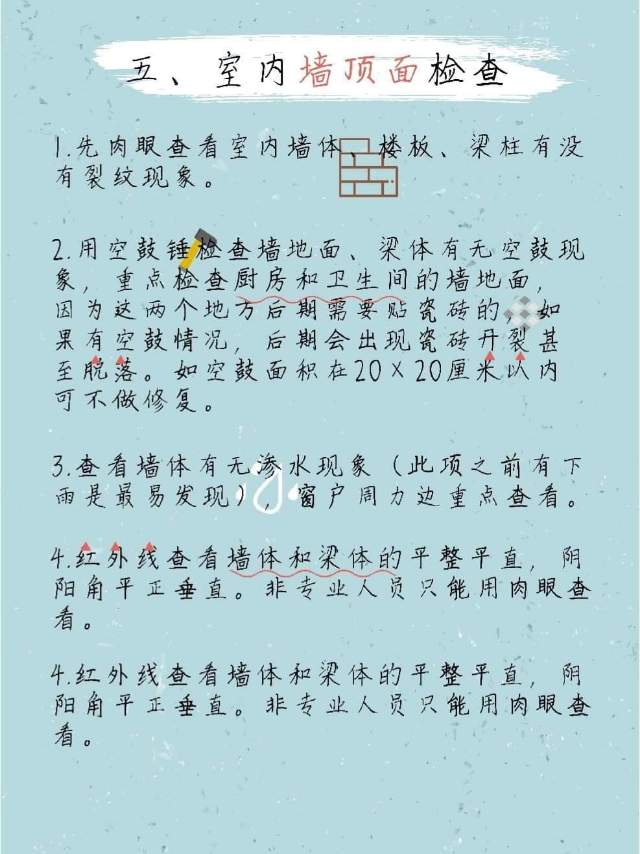 五、室内墙顶面检查
1.先肉眼查看室内墙体、楼板、梁柱有没
有裂纹现象。
2.用空鼓锤检查墙地面、梁体有无空鼓现
象，重点检查厨房和卫生间的墙地面，
因为这两个地方后期需要贴瓷砖的，如
果有空鼓情况，后期会出现瓷砖开裂甚
至脱落。如空鼓面积在20×20厘米以内
可不做修复。
3.查看墙体有无渗水现象（此项之前有下
雨是最易发现），窗户周力边重点查看。
4.红外线查看墙体和梁体的平整平直，阴
阳角平正垂直。非专业人员只能用肉眼查
看。
4.红外线查看墙体和梁体的平整平直，阴
阳角平正垂直。非专业人员只能用肉眼查
看。